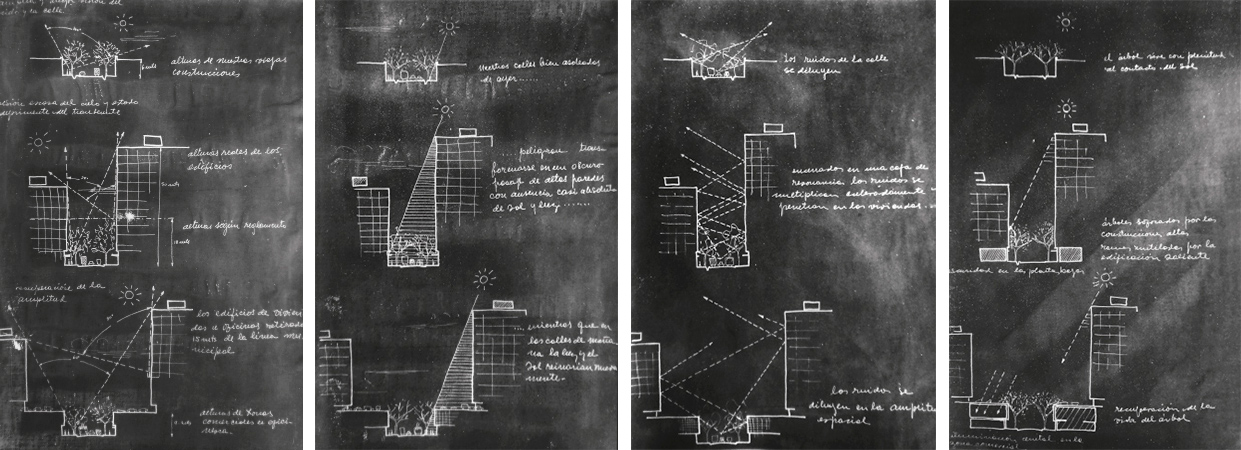 vida y la calle.
alturas de nuestras viejas
construcciones
visión escasa del cielo y estado
deprimente del transeunte
alturas reales de los
edificios
alturas según reglamento
recuperación de la
amplitud
los edificios de vivien
das u oficinas retirados
15 mts de la línea mu
nicipal
alturas de zonas
comerciales
nuestras calles bien asoleadas
de ayer......
....peligran trans
formarse en un obscuro
pasaje de altas paredes
con ausencia casi absoluta
de sol y luz.......
... mientras que en
las calles de maña
na la luz y el
sol reinarían nueva
mente-
Los ruidos de la calle
se diluyen
encerrados en una caja de
resonancia, los ruidos se
multiplican exteriormente
penetran en las viviendas
los ruidos se
diluyen en la amplitud
espacial
el árbol vive con plenitud
al contacto del sol
árboles sofocados por las
construcciones altas
ramas mutiladas por la
edificación saliente
oscuridad en las plantas bajas
recuperación de la
vida del árbol
cenital en la
zona comercial